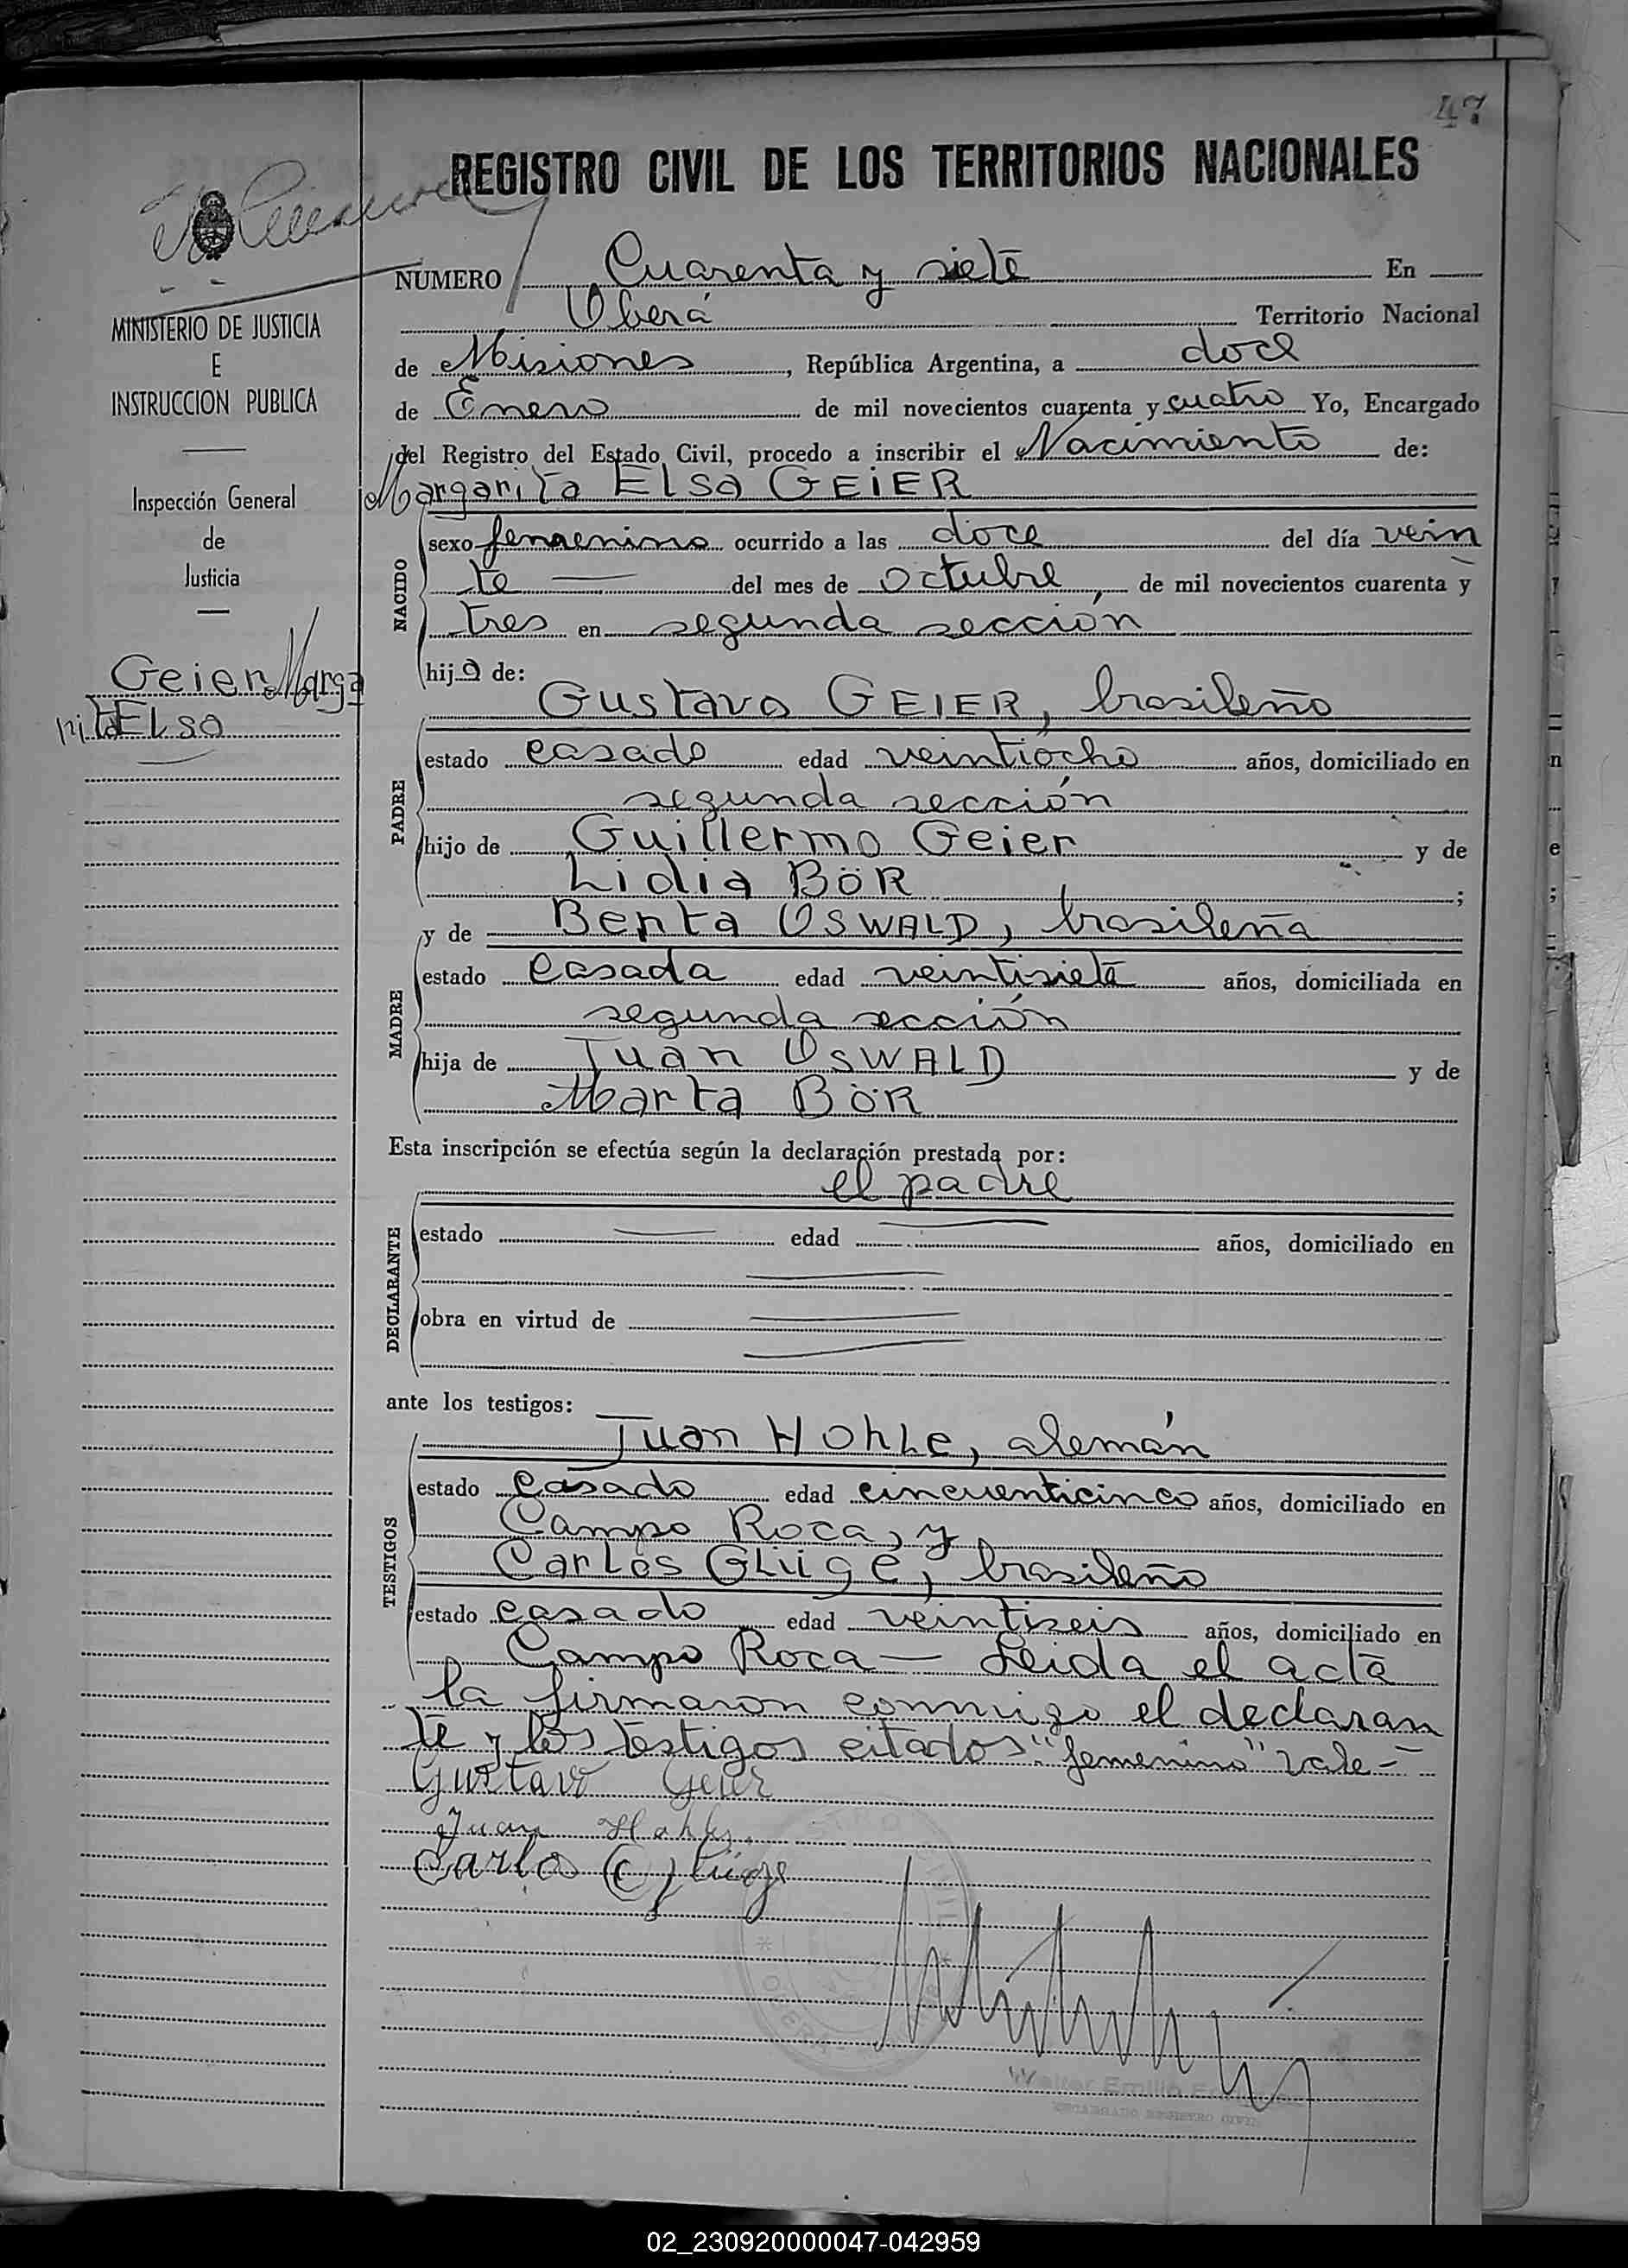 47
REGISTRO CIVIL DE LOS TERRITORIOS NACIONALES
NUMERO Cuarenta y siete En
Oberá Territorio Nacional
de Misiones, República Argentina, a doce
de Enero de mil novecientos cuarenta y cuatro Yo, Encargado
del Registro del Estado Civil, procedo a inscribir el Nacimiento de:
Margarita Elsa GEIER
MINISTERIO DE JUSTICIA
E
INSTRUCCION PUBLICA
Inspección General
de
Justicia
Geier Marga
rita Elsa
NACIDO
sexo femenino ocurrido a las doce del día vein
te del mes de octubre, de mil novecientos cuarenta y
tres en segunda sección
hija de:
PADRE
Gustavo GEIER, brasileño
estado casado edad veintiocho años, domiciliado en
segunda sección
hijo de Guillermo Geier y de
Lidia BöR ;
MADRE
y de Berta OSWALD, brasileña
estado casada edad veintisiete años, domiciliada en
segunda sección
hija de Juan OSWALD y de
Marta BöR
Esta inscripción se efectúa según la declaración prestada por:
el padre
DECLARANTE
estado edad años, domiciliado en
obra en virtud de
ante los testigos:
TESTIGOS
Juan Hohle, alemán
estado casado edad cincuenticinco años, domiciliado en
Campo Roca, y
Carlos Glüge, brasileño
estado casado edad veintiseis años, domiciliado en
Campo Roca — Leida el acta
la firmaron conmigo el declaran
te y los testigos citados "femenino" vale -
Gustavo Geier
Juan Hohle
Carlos Glüge
OBERA
Walter Emilio
ENCARGADO REGISTRO CIVIL
02_230920000047-042959